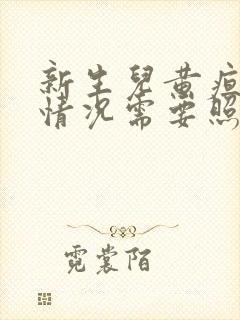 新生兒黄疸
情况需要照
霓裳陌